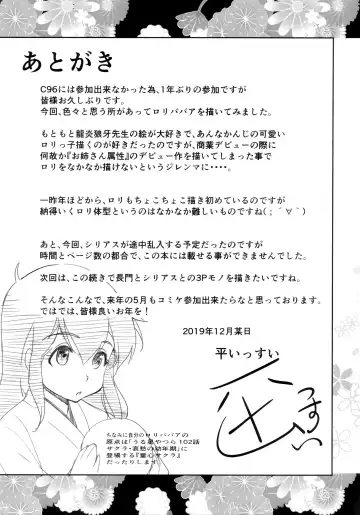 あとがき
C96には参加出来なかった為、1年ぶりの参加ですが
皆様お久しぶりです。
今回、色々と思う所があってロリババアを描いてみました。
もともと龍炎狼牙先生の絵が大好きで、あんなかんじの可愛い
ロリっ子描くのが好きだったのですが、商業デビューの際に
何故か『お姉さん属性』のデビュー作を描いてしまった事で
ロリをなかなか描けないというジレンマに・・・・。
一昨年ほどから、ロリもちょこちょこ描き初めているのですが
納得いくロリ体型というのはなかなか難しいものですね( ; ´∀｀)
あと、今回、シリアスが途中乱入する予定だったのですが
時間とページ数の都合で、この本には載せる事ができませんでした。
次回は、この続きで長門とシリアスとの3Pモノを描きたいですね。
そんなこんなで、来年の5月もコミケ参加出来たらなと思っております。
ではでは、皆様良いお年を！
2019年12月某日
平いっすい
平
いっすい
ちなみに自分のロリババアの
原点は「うる星やつら102話
サクラ・哀愁の幼年期」に
登場する『童心サクラ』
だったりします。